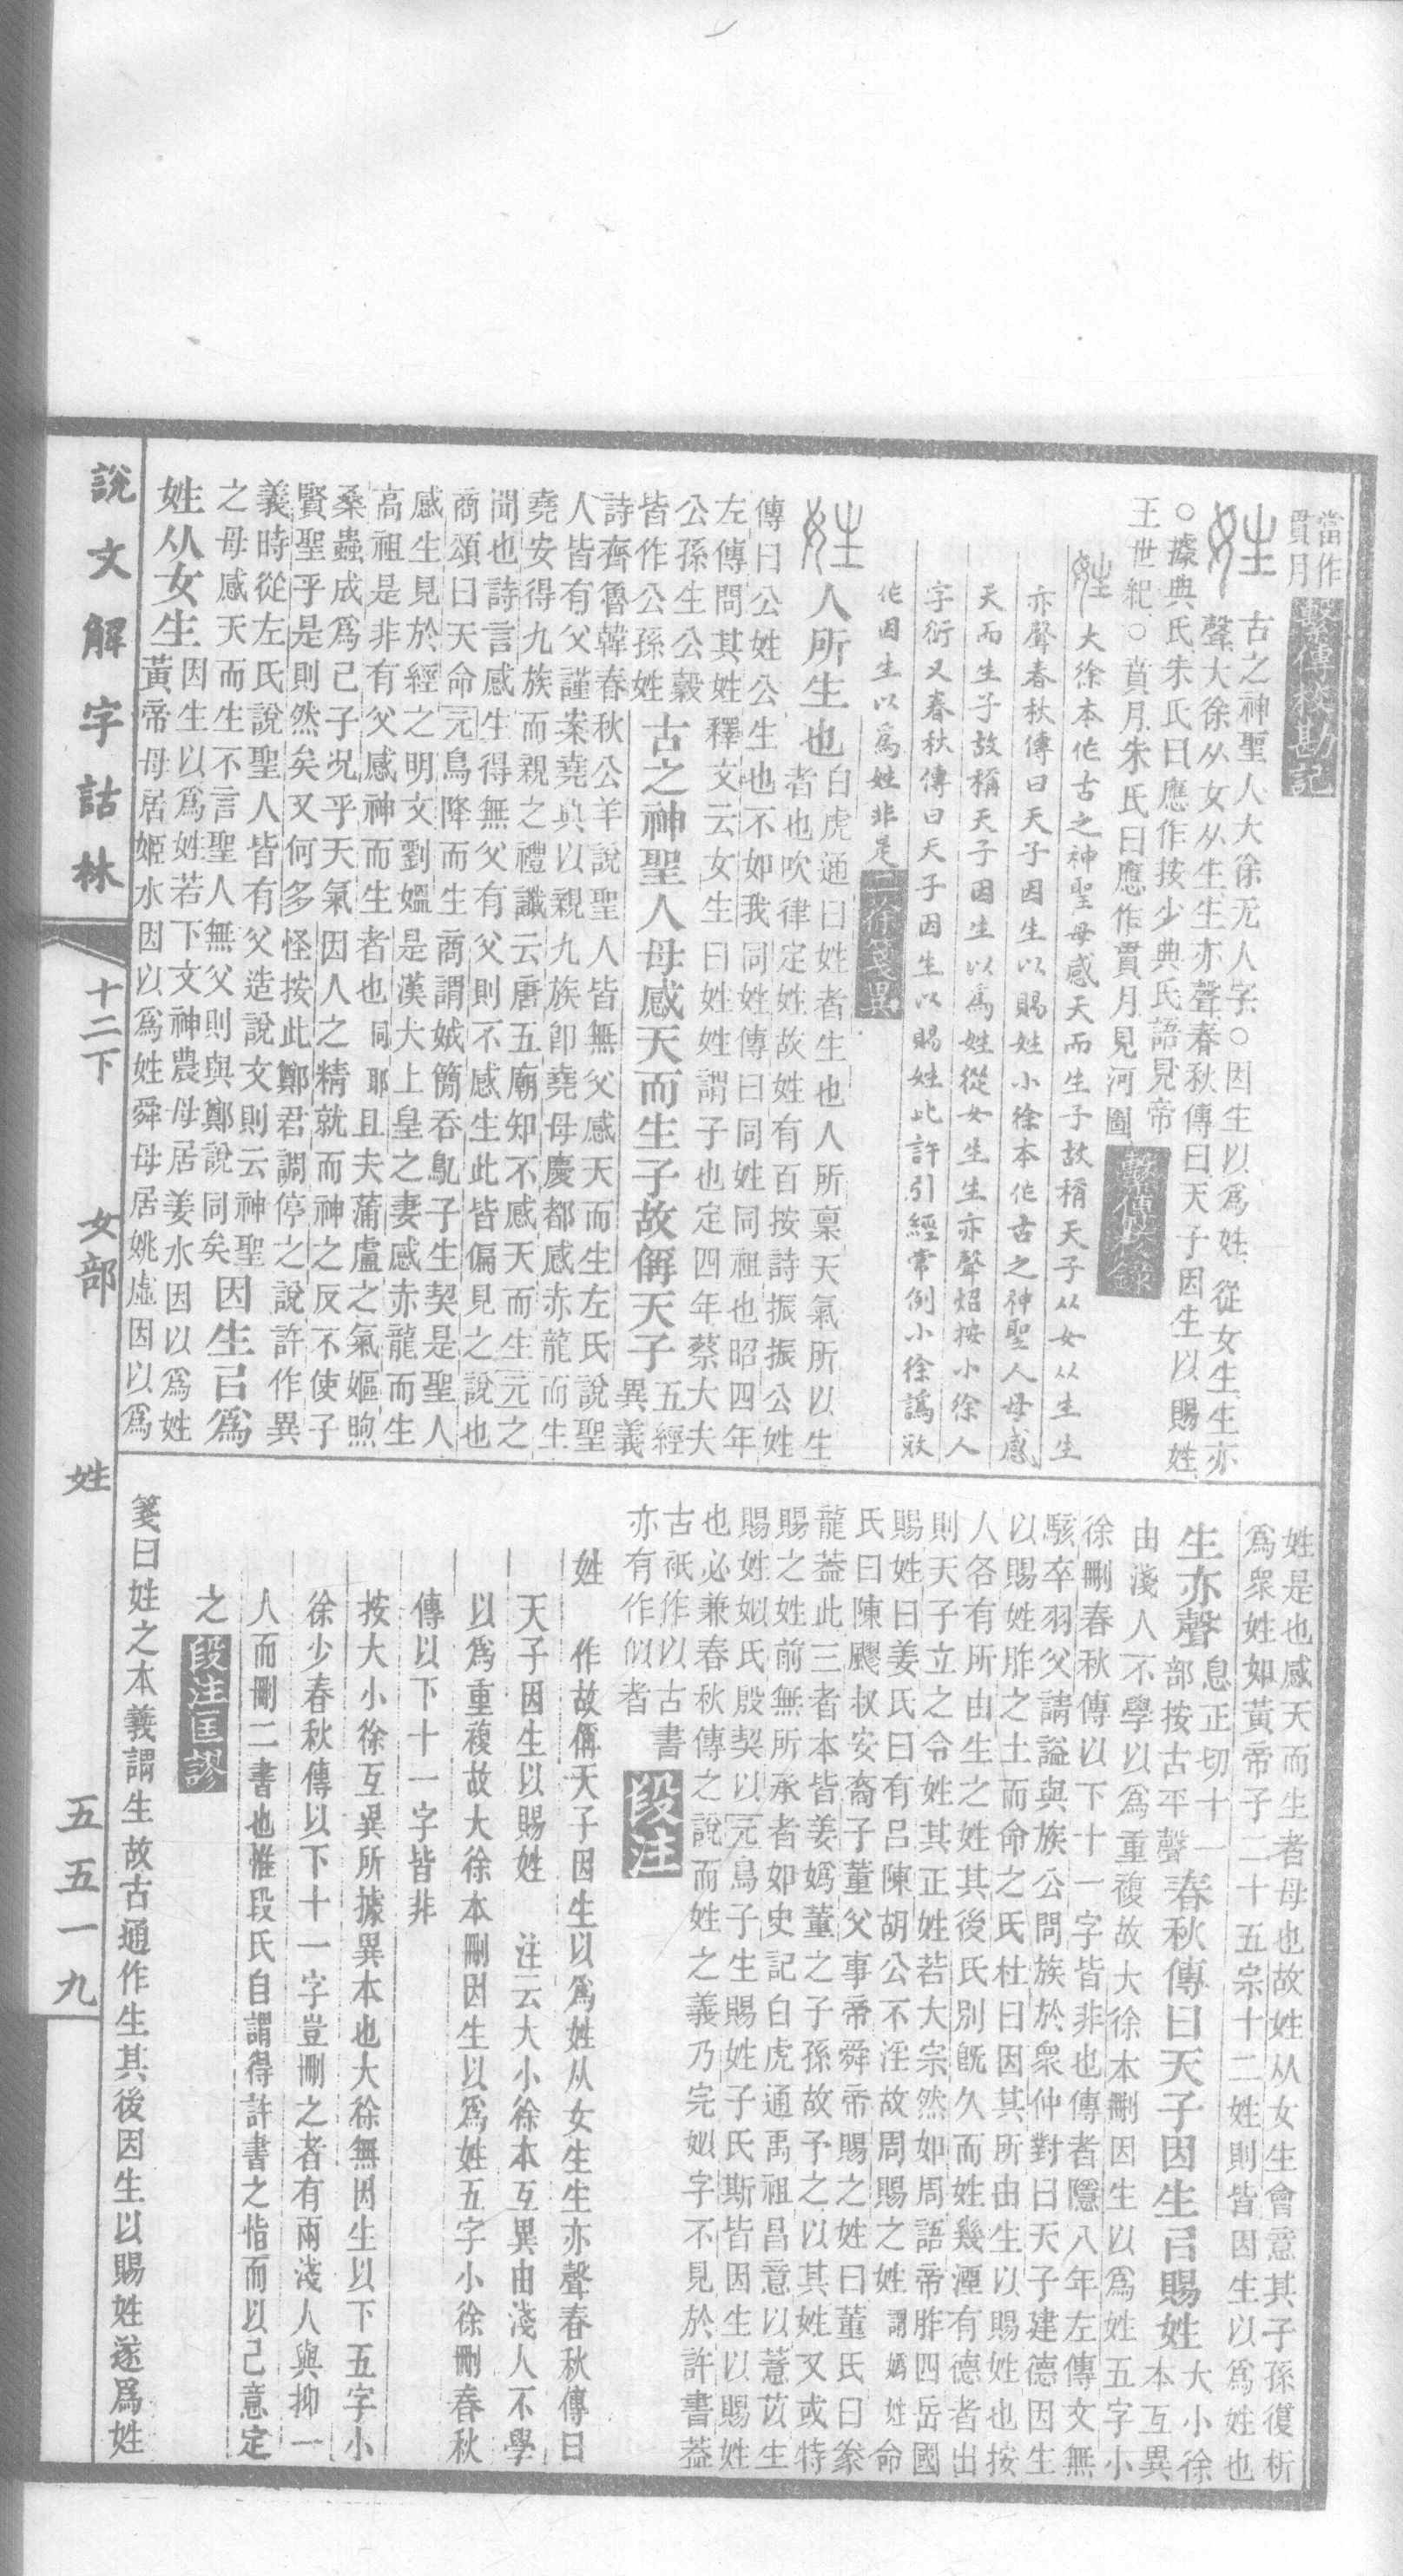 當作
貫月
繫傳校勘記
姓
古之神聖人大徐无人字○因生以爲姓從女生生亦
聲大徐从女从生生亦聲春秋傳曰天子因生以賜姓
○據典氏朱氏曰應作按少典氏語見帝
王世紀○貟月朱氏曰應作貫月見河圖
繫傳校錄
姓大徐本作古之神聖母感天而生子故稱天子从女从生生
亦聲春秋傳曰天子因生以賜姓小徐本作古之神聖人母感
天而生子故稱天子因生以爲姓從女生生亦聲炤按小徐人
字衍又春秋傳曰天子因生以賜姓此許引經常例小徐譌敚
作因生以爲姓非是
二徐箋異
姓人所生也
白虎通曰姓者生也人所稟天氣所以生
者也吹律定姓故姓有百按詩振振公姓
傳曰公姓公生也不如我同姓傳曰同姓同祖也昭四年
左傳問其姓釋文云女生曰姓姓謂子也定四年蔡大夫
公孫生公穀
皆作公孫姓
古之神聖人母感天而生子故偁天子
五經
異義
詩齊魯韓春秋公羊說聖人皆無父感天而生左氏說聖
人皆有父謹案堯典以親九族卽堯母慶都感赤龍而生
堯安得九族而親之禮讖云唐五廟知不感天而生元之
聞也詩言感生得無父有父則不感生此皆偏見之說也
商頌曰天命元鳥降而生商謂娀簡吞鳦子生契是聖人
感生見於經之明文劉媼是漢大上皇之妻感赤龍而生
高祖是非有父感神而生者也同耶且夫蒲盧之氣嫗煦
桑蟲成爲己子况乎天氣因人之精就而神之反不使子
賢聖乎是則然矣又何多怪按此鄭君調停之說許作異
義時從左氏說聖人皆有父造說文則云神聖
之母感天而生不言聖人無父則與鄭說同矣
因生㠯爲
姓从女生
因生以爲姓若下文神農母居姜水因以爲姓
黃帝母居姬水因以爲姓舜母居姚虛因以爲
姓是也感天而生者母也故姓从女生會意其子孫復析
爲衆姓如黃帝子二十五宗十二姓則皆因生以爲姓也
生亦聲
息正切十一
部按古平聲
春秋傳曰天子因生㠯賜姓
大小徐
本互異
由淺人不學以爲重複故大徐本刪因生以爲姓五字小
徐刪春秋傳以下十一字皆非也傳者隱八年左傳文無
駭卒羽父請謚與族公問族於衆仲對曰天子建德因生
以賜姓胙之土而命之氏杜曰因其所由生以賜姓也按
人各有所由生之姓其後氏別旣久而姓幾湮有德者出
則天子立之令姓其正姓若大宗然如周語帝胙四岳國
賜姓曰姜氏曰有呂陳胡公不淫故周賜之姓謂嬀姓命
氏曰陳飂叔安裔子董父事帝舜帝賜之姓曰董氏曰豢
龍葢此三者本皆姜嬀董之子孫故予之以其姓又或特
賜之姓前無所承者如史記白虎通禹祖昌意以薏苡生
賜姓姒氏殷契以元鳥子生賜姓子氏斯皆因生以賜姓
也必兼春秋傳之說而姓之義乃完姒字不見於許書葢
古祇作以古書
亦有作似者
段注
姓　作故偁天子因生以爲姓从女生生亦聲春秋傳曰
天子因生以賜姓　注云大小徐本互異由淺人不學
以爲重複故大徐本刪因生以爲姓五字小徐刪春秋
傳以下十一字皆非
按大小徐互異所據異本也大徐無因生以下五字小
徐少春秋傳以下十一字豈刪之者有兩淺人與抑一
人而刪二書也惟段氏自謂得許書之恉而以己意定
之
段注匡謬
箋曰姓之本義謂生故古通作生其後因生以賜姓遂爲姓
說文解字詁林
十二下
女部
姓
五五一九